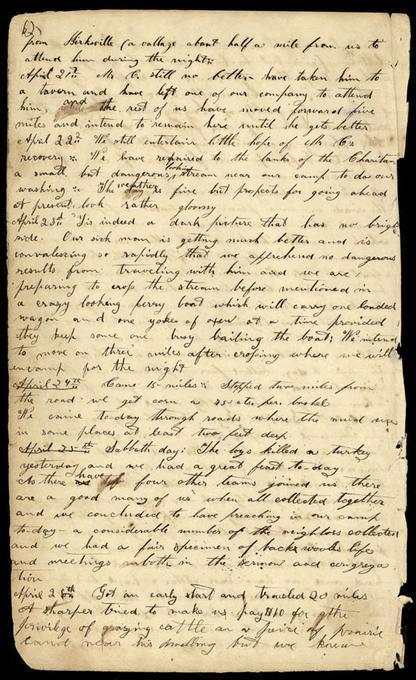 from Herksville (a vallage about half a mile from us to
attend him during the night:
April 21st Mr C. still no better have taken him to
a tavern and have left one of our company to attend
him and the rest of us have moved forward five
miles and intend to remain here until he gets better
April 22nd We still entertain little hope of Mr C's
recovery: We have repaired to the banks of the Charitan
a small but dangerous looking stream near our camp to do our
washing: The weather is fine but prospects for going ahead
at present look rather gloomy
April 23rd 'Tis indeed a dark picture that has no bright
side. Our sick man is getting much better and is
convalescing so rapidly that we apprehend no dangerous
results from traveling with him and we are
preparing to crop the stream before mentioned in
a crazy looking ferry boat which will carry one loaded
wagon and one yoke of oxen at a time provided
they keep some one busy bailing the boat: We intend
to move on three miles after croping where we will
encamp for the night
April 24th Came 15 miles: Stopped two miles from
the road: we get corn a 25 cts per bushel
We came to-day through roads where the mud was
in some places at least two feet deep
April 25th Sabbath day: The boys killed a turkey
yesterday and we had a great feast to-day
As there have four other teams joined us there
are a good many of us when all collected together
and we concluded to have preaching in our camp
to-day a considerable number of the neighbors collected
and we had a fair specimen of backwoods life
and meetings both in the sermon and congrega
tion
April 26th Got an early start and traveled 20 miles
A sharper tried to make us pay $10 for the
privilege of grazing cattle on a piece of prairie
land near his dwelling but we knew